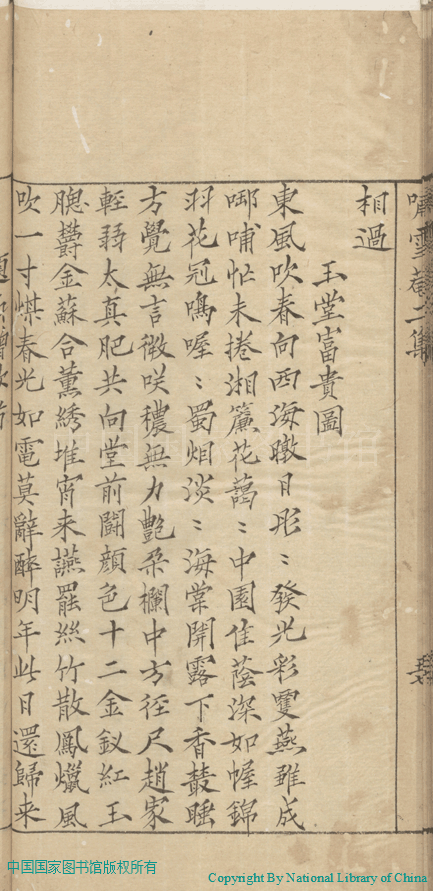 嘯雪菴二集
相過
玉堂富貴圖
東風吹春向西海暾日彤〻發光彩雙燕雖成
啣哺忙未捲湘簾花藹〻中園佳蔭深如幄錦
羽花冠鳴喔〻蜀烟淡〻海棠開露下香叢睡
方覺無言微咲穠無力艶朶欄中方徑尺趙家
輕弱太真肥共向堂前鬪顔色十二金釵紅玉
膍欝金蘇合薰綉堆宵来讌罷絲竹散鳳爉風
吹一寸煤春光如電莫辭醉明年此日還歸来
中国国家图书馆版权所有
Copyright By National Library of China